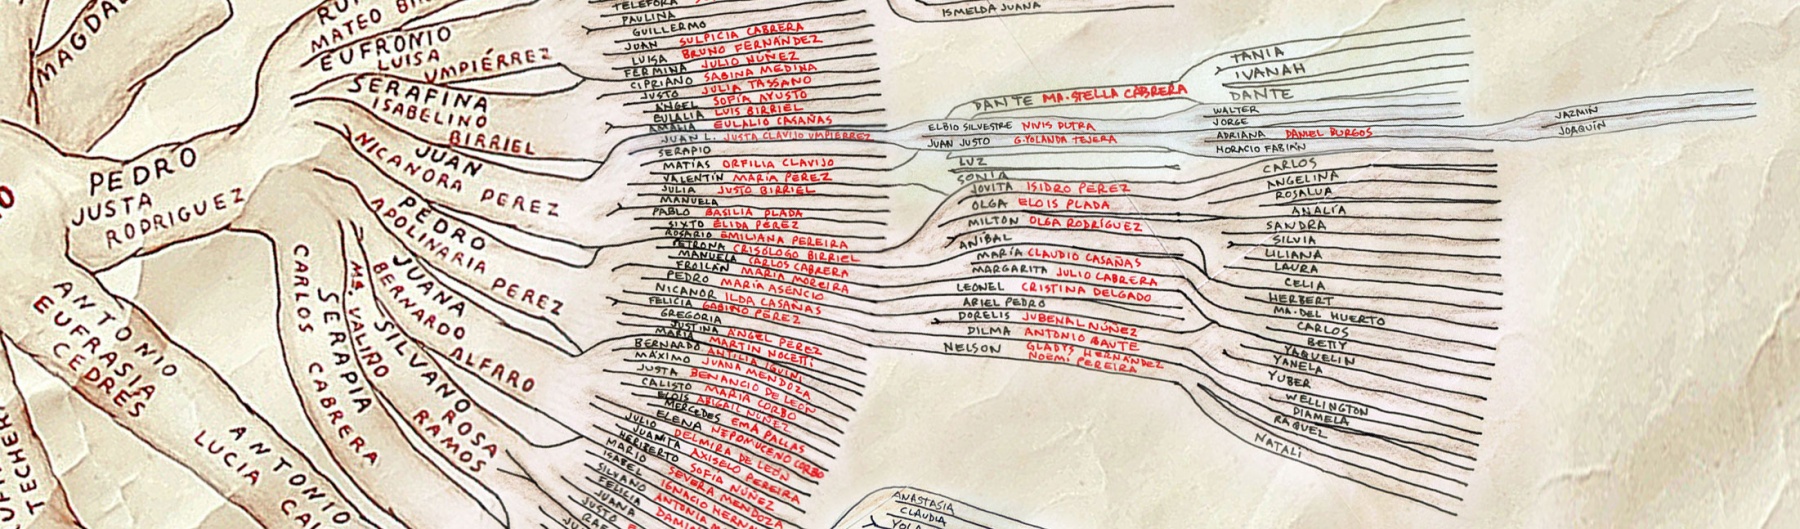 MAGDA
PEDRO
JUSTA
RODRIGUEZ
MATEO
EUFRONIO
LUISA
UMPIÉRREZ
SERAFINA
ISABELINO
BIRRIEL
JUAN
NICANORA PEREZ
PEDRO
APOLINARIA PEREZ
JUANA
BERNARDO ALFARO
SILVANO ROSA
RAMOS
Ma. VALLINO
SERAPIA
CARLOS CABRERA
ANTONIO
EUFRASIA
CEDRÉS
ANTONIO
LUCIA
TECHER
TELEFORA
PAULINA
GUILLERMO
JUAN SULPICIA CABRERA
LUISA BRUNO FERNÁNDEZ
FERMINA JULIO NUÑEZ
CIPRIANO SABINA MEDINA
JUSTO JULIA TASSANO
ÁNGEL SOFÍA AYUSTO
EULALIA LUIS BIRRIEL
AMALIA EULALIO CASAÑAS
JUAN L. JUSTA CLAVIJO UMPIERREZ
SERAPIO
MATÍAS ORFILIA CLAVIJO
VALENTÍN MARÍA PÉREZ
JULIA JUSTO BIRRIEL
MANUELA
PABLO BASILIA PLADA
SIXTO ÉLIDA PÉREZ
ROSARIO EMILIANA PEREIRA
PETRONA CRISÓLOGO BIRRIEL
MANUELA CARLOS CABRERA
FROILÁN MARÍA MOREIRA
PEDRO MARÍA ASENCIO
NICANOR ILDA CASAÑAS
FELICIA GABINO PÉREZ
GREGORIA
JUSTINA ÁNGEL PÉREZ
MARÍA MARTÍN NOCETTI
BERNARDO ANTILIA IGUINI
MÁXIMO JUANA MENDOZA
JUSTA BENANCIO DE LEÓN
CALISTO MARÍA CORBO
ELOIS ABIGAIL NUÑEZ
MERCEDES EMA PALLAS
ELENA NEPOMUCENO CORBO
JULIO DELMIRA DE LEÓN
JUANITA AXISELO PEREIRA
HERIBERTO SOFÍA NÚÑEZ
MARIO SEVERA MENDOZA
ISABEL IGNACIO
SILVANO ANTONIA
FELICIA
JUANA
JUSTO
ISMELDA JUANA
DANTE MA. STELLA CABRERA
ELBIO SILVESTRE NIVIS DUTRA
JUAN JUSTO G. YOLANDA TEJERA
LUZ
SONIA
JOVITA ISIDRO PÉREZ
OLGA ELOIS PLADA
MILTON OLGA RODRÍGUEZ
ANÍBAL
MARÍA CLAUDIO CASAÑAS
MARGARITA JULIO CABRERA
LEONEL CRISTINA DELGADO
ARIEL PEDRO
DORELIS JUBENAL NÚÑEZ
DILMA ANTONIO BAUTE
NELSON GLADYS HERNÁNDEZ
NOEMÍ PEREIRA
TANIA
IVANAH
DANTE
WALTER
JORGE
ADRIANA DANIEL BURGOS
HORACIO FABIÁN
JAZMÍN
JOAQUÍN
CARLOS
ANGELINA
ROSALUA
ANALÍA
SANDRA
SILVIA
LILIANA
LAURA
CELIA
HERBERT
MA. DEL HUERTO
CARLOS
BETTY
YAQUELIN
YANELA
YUBER
WELLINGTON
DIAMELA
RAQUEL
NATALI
ANASTASIA
CLAUDIA